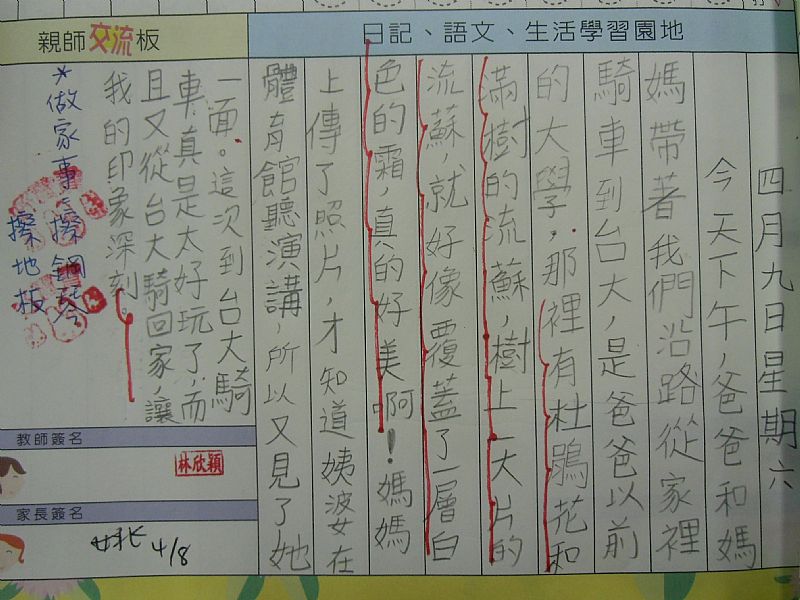 日記、語文、生活學習園地
四月九日星期六
今天下午,爸爸和媽
媽帶著我們沿路從家裡
騎車到台大,是爸爸以前
的大學,那裡有杜鵑花和
滿樹的流蘇,樹上一大片的
流蘇,就好像覆蓋了一層白
色的霜,真的好美啊!媽媽
上傳了照片,才知道姨婆在
體育館聽演講,所以又見了她
親師交流板
一面。這次到台大騎
車,真是太好玩了,而
且又從台大騎回家,讓
我的印象深刻。
*做家事:擦鋼琴
擦地板
教師簽名
林欣穎
家長簽名
4/8